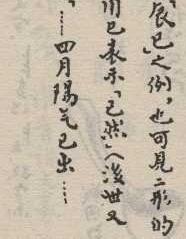 「辰巳」之例，也可見二形的
用巳表示「已然」（後世又
「……四月陽气巳出……